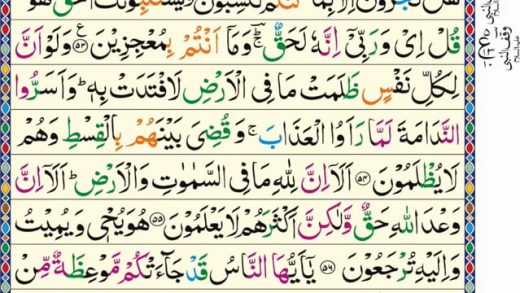 هَلْ تُجْزَوْنَ اِلَّا بِمَا كُنْتُمْ تَكْسِبُوْنَ وَيَسْتَنْۢبِـُٔوْنَكَ اَحَقٌّ هُوَ
قُلْ اِیْ وَرَبِّیْۤ اِنَّهٗ لَحَقٌّ ؔۚ وَمَاۤ اَنْتُمْ بِمُعْجِزِیْنَ ﴿۵۳﴾ وَلَوْ اَنَّ
لِكُلِّ نَفْسٍ ظَلَمَتْ مَا فِی الْاَرْضِ لَافْتَدَتْ بِهٖ ؕ وَاَسَرُّوا
النَّدَامَةَ لَمَّا رَاَوُا الْعَذَابَ ۚ وَقُضِیَ بَیْنَهُمْ بِالْقِسْطِ وَهُمْ
لَا یُظْلَمُوْنَ ﴿۵۴﴾ اَلَاۤ اِنَّ لِلّٰهِ مَا فِی السَّمٰوٰتِ وَالْاَرْضِ ؕ اَلَاۤ اِنَّ
وَعْدَ اللّٰهِ حَقٌّ وَّلٰكِنَّ اَكْثَرَهُمْ لَا یَعْلَمُوْنَ ﴿۵۵﴾ هُوَ یُحْیٖ وَیُمِیْتُ
وَاِلَیْهِ تُرْجَعُوْنَ ﴿۵۶﴾ یٰۤاَیُّهَا النَّاسُ قَدْ جَآءَتْكُمْ مَّوْعِظَةٌ مِّنْ